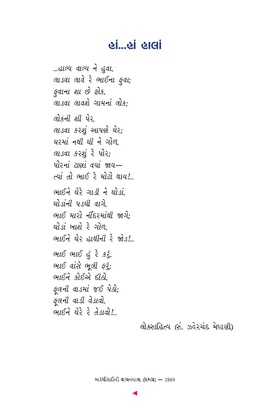 હાં...હાં હાલાં
...હાલ્ય વાલ્ય ને હુવા,
લાડવા લાવે રે ભાઈના ફુવા;
ફુવાના શા છે ફોક,
લાડવા લાવશે ગામનાં લોક;
લોકની શી પેર,
લાડવા કરશું આપણે ઘેર;
ઘરમાં નથી ઘી ને ગોળ,
લાડવા કરશું રે પોર;
પોરનાં ટાણાં વયાં જાય—
ત્યાં તો ભાઈ રે મોટો થાય!..
ભાઈને ઘેરે ગાડી ને ઘોડાં,
ઘોડાંની પડઘી વાગે,
ભાઈ મારો નીંદરમાંથી જાગે;
ઘોડાં ખાશે રે ગોળ,
ભાઈને ઘેર હાથીની રે જોડ!..
ભાઈ ભાઈ હું રે કરું,
ભાઈ વાંસે ભૂલી ફરું;
ભાઈને કોઈએ દીઠો,
ફૂલની વાડમાં જઈ પેઠો;
ફૂલની વાડી વેડાવો,
ભાઈને ઘેરે રે તેડાવો!..
લોકસાહિત્ય (સં. ઝવેરચંદ મેઘાણી)